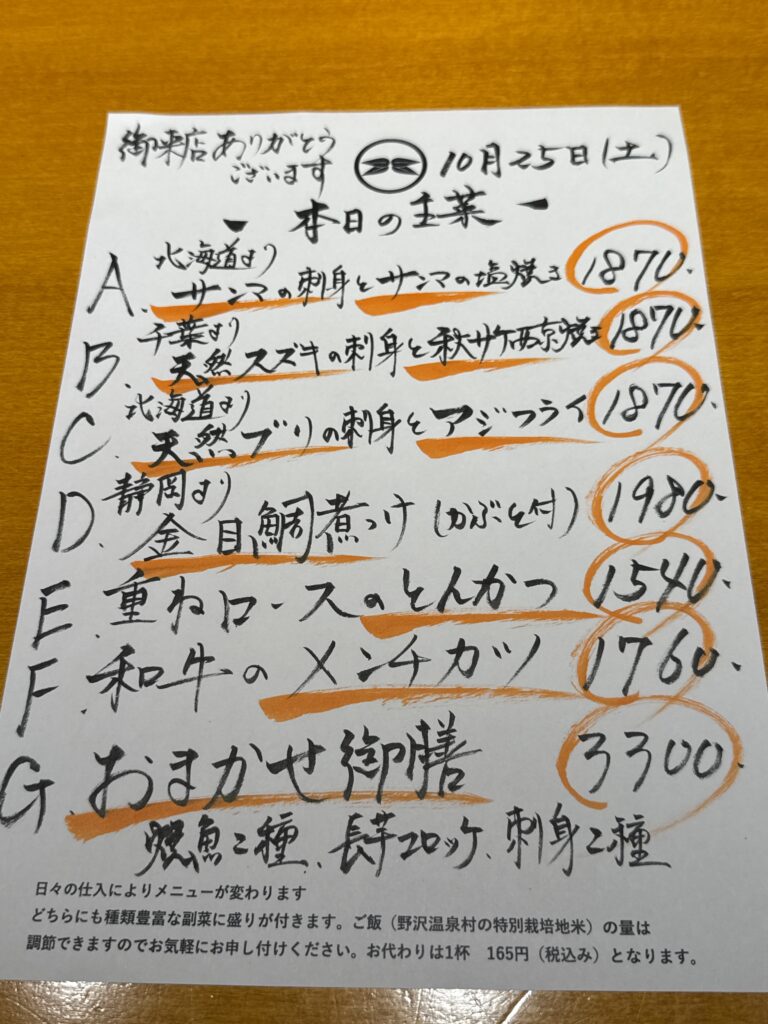 御来店ありがとう
ございます
10月25日(土)
本日の主菜
A. 北海道より
サンマの刺身とサンマの塩焼き 1870.
B. 千葉より
天然スズキの刺身と秋サケ西京焼き 1870.
C. 北海道より
天然ブリの刺身とアジフライ 1870.
D. 静岡より
金目鯛煮つけ(かぶと付) 1980.
E. 重ねロースのとんかつ 1540.
F. 和牛のメンチカツ 1760.
G. おまかせ御膳 3300.
焼魚二種、長芋コロッケ、刺身二種
日々の仕入によりメニューが変わります
どちらにも種類豊富な副菜に盛りが付きます。ご飯(野沢温泉村の特別栽培地米)の量は
調節できますのでお気軽にお申し付けください。お代わりは1杯 165円(税込み)となります。